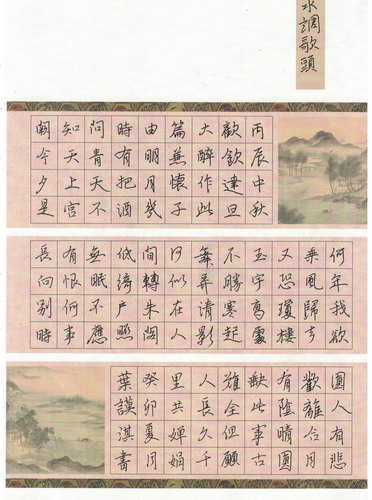 水調歌頭
丙辰中秋
歡飲達旦
大醉作此
篇兼懷子
由明月幾
時有把酒
問青天不
知天上宮
闕今夕是
何年我欲
乘風歸去
又恐瓊樓
玉宇高處
不勝寒起
舞弄清影
何似在人
間轉朱閣
低綺戶照
無眠不應
有恨何事
長向別時
圓人有悲
歡離合月
有陰晴圓
缺此事古
難全但願
人長久千
里共嬋娟
癸卯夏月
葉謨淇書